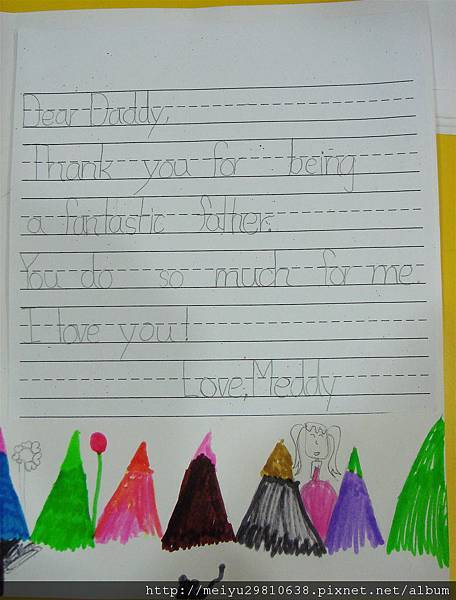 Dear Daddy,
Thank you for being
a fantastic father.
You do so much for me.
I love you!
Love, Meddy
http://meiyu29810638.pixnet.net/album